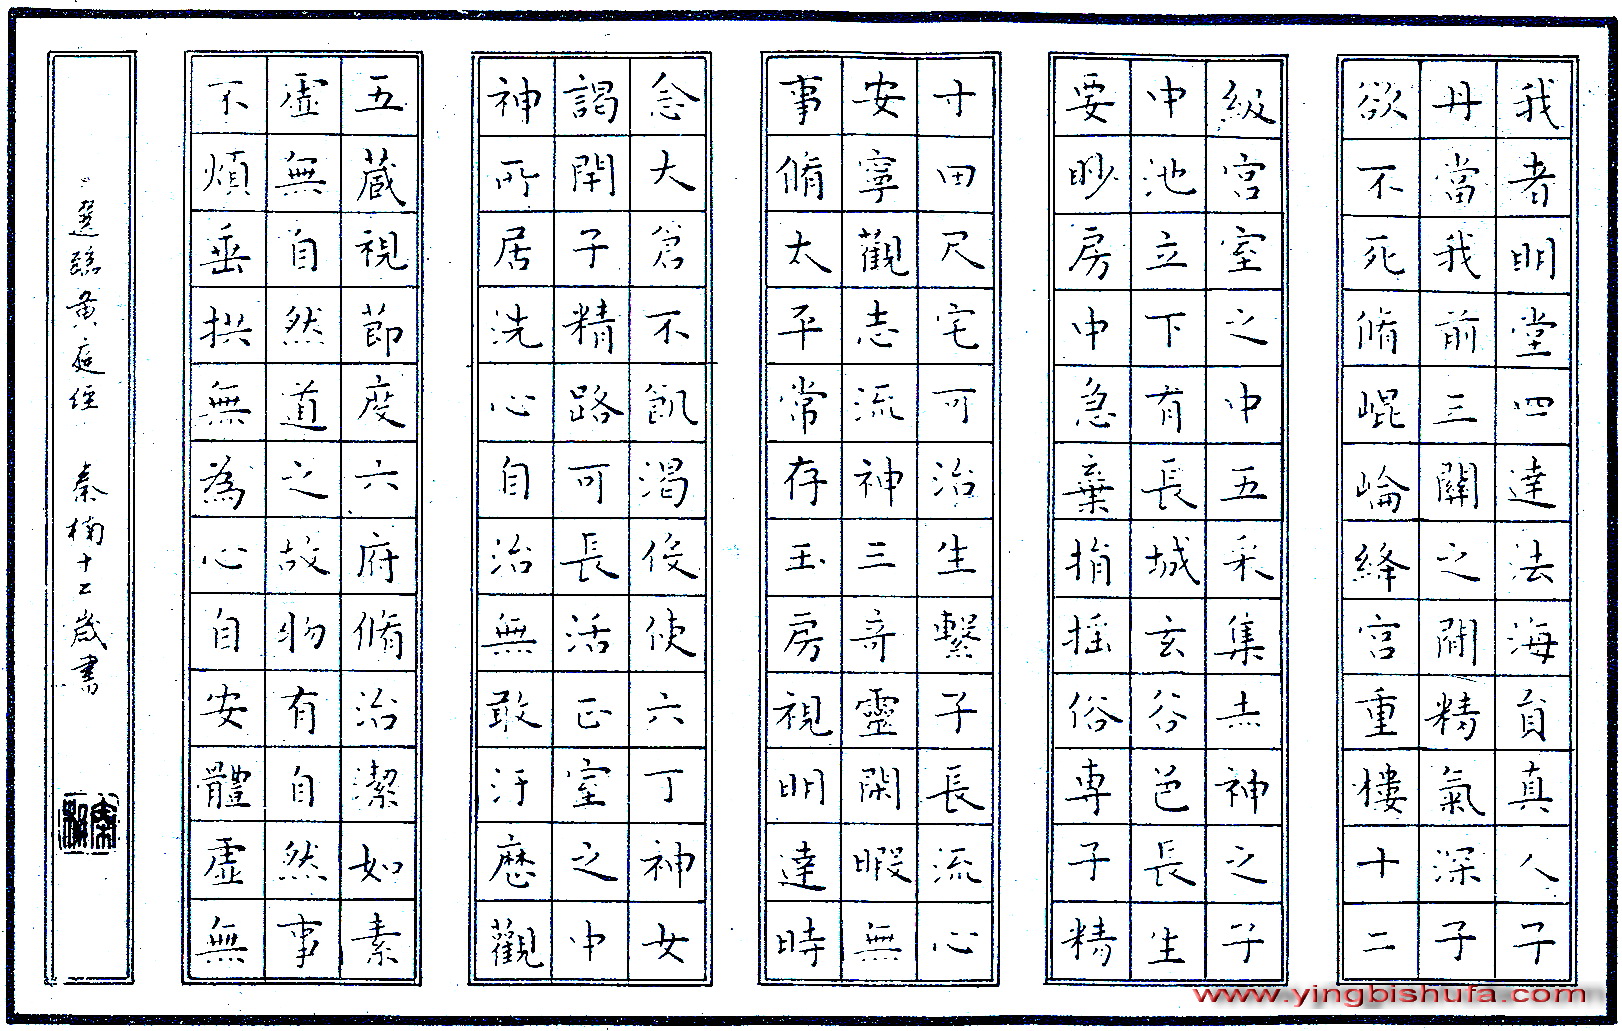 我者明堂四達法海員真人子
丹當我前三關之間精氣深子
欲不死脩崐崘絳宮重樓十二
級宮室之中五采集赤神之子
中池立下有長城玄谷邑長生
要眇房中急棄捐揺俗専子精
寸田尺宅可治生繫子長流心
安寧觀志流神三奇靈閑暇無
事脩太平常存玉房視明達時
念大倉不飢渴役使六丁神女
謁閉子精路可長活正室之中
神所居洗心自治無敢汙歷觀
五藏視節度六府脩治潔如素
虛無自然道之故物有自然事
不煩垂拱無為心自安體虛無
選臨黄庭經 秦楠十二歲書
www.yingbishufa.com